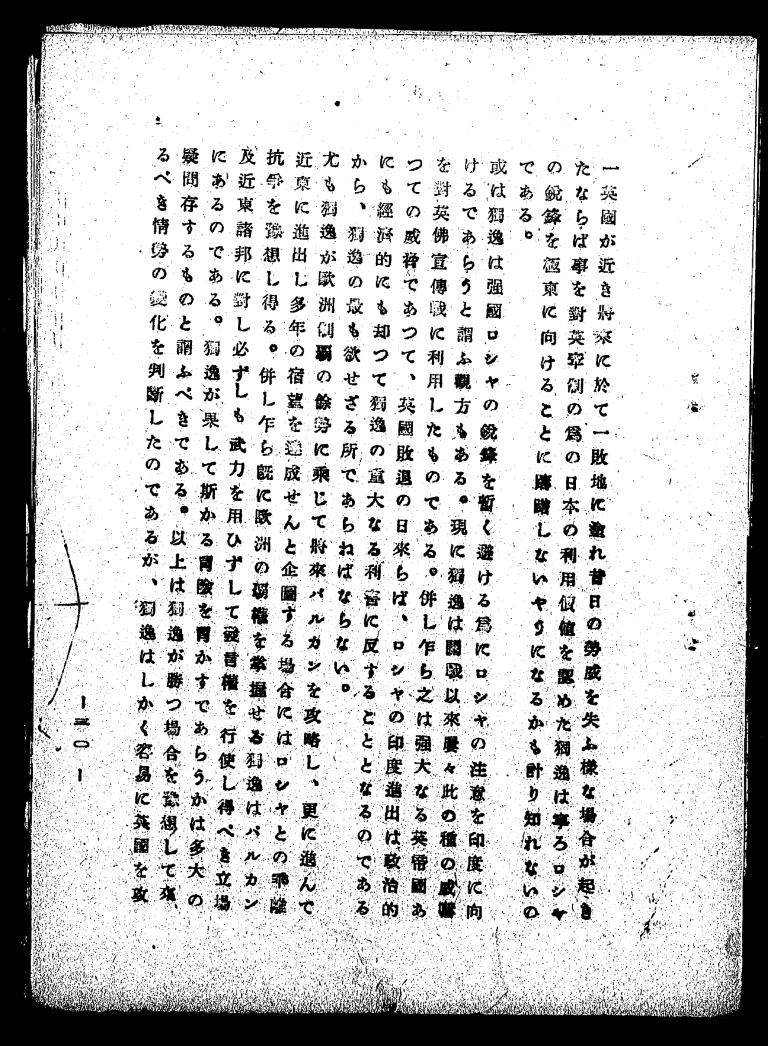 一英國が近き將來に於て一敗地に塗れ昔日の勢威を失ふ樣な場合が起き
たならば寧を對英宰制の爲の日本の利用價値を認めた獨逸は寧ろロシヤ
の銳鋒を極東に向けることに躊躇しないやうになるかも計り知れないの
である。
或は獨逸は强國ロシヤの銳鋒を暫く避ける爲にロシヤの注意を印度に向
けるであらうと謂ふ觀方もある。現に獨逸は開戰以來屢々此の種の威嚇
を對英佛宣傳戰に利用したものである。併し乍ら之は强大なる英帝國あ
つての威脅であつて、英國敗退の日來らば、ロシヤの印度進出は政治的
にも經濟的にも却つて獨逸の重大なる利害に反することとなるのである
から、獨逸の最も欲せざる所であらねばならない。
尤も獨逸が歐洲制覇の餘勢に乘じて將來バルカンを攻略し、更に進んで
近東に進出し多年の宿望を達成せんと企圖する場合にはロシヤとの乖離
抗爭を豫想し得る。併し乍ら旣に歐洲の覇權を掌握せる獨逸はバルカン
及近東諸邦に對し必ずしも武力を用ひずして發言權を行使し得べき立場
にあるのである。獨逸が果して斯かる冒險を冒かすであらうかは多大の
疑問存するものと謂ふべきである。以上は獨逸が勝つ場合を豫想して來
るべき情勢の變化を判斷したのであるが、獨逸はしかく容易に英國を攻
-三〇-